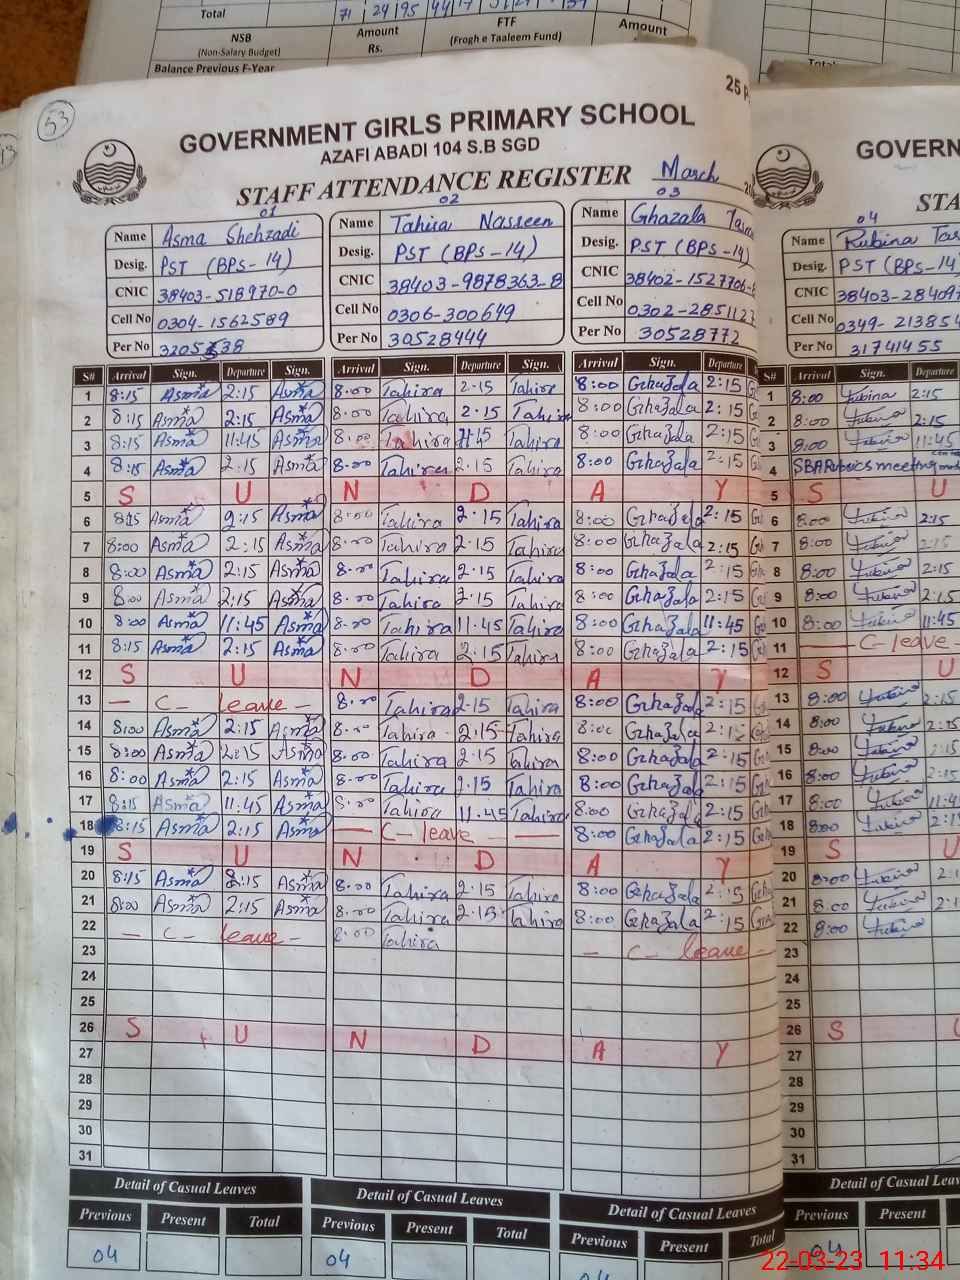 Total 71 24 95 44 17
NSB Amount FTF Amount
(Non-Salary Budget) Rs. (Frogh e Taaleem Fund)
Balance Previous F-Year
53
GOVERNMENT GIRLS PRIMARY SCHOOL
AZAFI ABADI 104 S.B SGD
STAFF ATTENDANCE REGISTER March
01 02 03
Name Asma Shehzadi Name Tahira Nasreen Name Ghazala
Desig. PST (BPS-14) Desig. PST (BPS-14) Desig. PST (BPS-14)
CNIC 38403-518970-0 CNIC 38403-9878363-8 CNIC 38402-1527706-
Cell No 0304-1562589 Cell No 0306-300649 Cell No 0302-2851127
Per No Per No 30528444 Per No 30528772
S# Arrival Sign. Departure Sign. Arrival Sign. Departure Sign. Arrival Sign. Departure
1 8:15 Asma 2:15 Asma 8:00 Tahira 2·15 Tahira 8:00 Ghazala 2:15
2 8:15 Asma 2:15 Asma 8:00 Tahira 2·15 Tahira 8:00 Ghazala 2:15
3 8:15 Asma 11:45 Asma 8:00 Tahira Tahira 8:00 Ghazala 2:15
4 8:15 Asma 2:15 Asma 8:00 Tahira 2·15 Tahira 8:00 Ghazala 2:15
5 S U N D A Y
6 8:15 Asma 2:15 Asma 8:00 Tahira 2·15 Tahira 8:00 Ghazala 2:15
7 8:00 Asma 2:15 Asma 8:00 Tahira 2·15 Tahira 8:00 Ghazala 2:15
8 8:00 Asma 2:15 Asma 8:00 Tahira 2·15 Tahira 8:00 Ghazala 2:15
9 8:00 Asma 2:15 Asma 8:00 Tahira 2·15 Tahira 8:00 Ghazala 2:15
10 8:00 Asma 11:45 Asma 8:00 Tahira 11·45 Tahira 8:00 Ghazala 11:45
11 8:15 Asma 2:15 Asma 8:00 Tahira 2·15 Tahira 8:00 Ghazala 2:15
12 S U N D A Y
13 - C- leave - 8:00 Tahira 2·15 Tahira 8:00 Ghazala 2:15
14 8:00 Asma 2:15 Asma 8:00 Tahira 2·15 Tahira 8:00 Ghazala 2:15
15 8:00 Asma 2:15 Asma 8:00 Tahira 2·15 Tahira 8:00 Ghazala 2:15
16 8:00 Asma 2:15 Asma 8:00 Tahira 2·15 Tahira 8:00 Ghazala 2:15
17 8:15 Asma 11:45 Asma 8:00 Tahira 11·45 Tahira 8:00 Ghazala 2:15
18 8:15 Asma 2:15 Asma - C- leave - 8:00 Ghazala 2:15
19 S U N D A Y
20 8:15 Asma 2:15 Asma 8:00 Tahira 2·15 Tahira 8:00 Ghazala 2:15
21 8:00 Asma 2:15 Asma 8:00 Tahira 2·15 Tahira 8:00 Ghazala 2:15
22 - C- leave - 8:00 Tahira - C- leave -
23
24
25
26 S U N D A Y
27
28
29
30
31
Detail of Casual Leaves Detail of Casual Leaves Detail of Casual Leaves
Previous Present Total Previous Present Total Previous Present Total
04 04 04
GOVERN
STA
04
Name Rubina
Desig. PST (BPS-14)
CNIC 38403-28409
Cell No 0349-213854
Per No 31741455
S# Arrival Sign. Departure
1 8:00 Rubina 2:15
2 8:00 Rubina 2:15
3 8:00 Rubina 11:45
4 SBA Rubrics meeting
5 S U
6 8:00 Rubina 2:15
7 8:00 Rubina 2:15
8 8:00 Rubina 2:15
9 8:00 Rubina 2:15
10 8:00 Rubina 11:45
11 - C- leave -
12 S U
13 8:00 Rubina 2:15
14 8:00 Rubina 2:15
15 8:00 Rubina 2:15
16 8:00 Rubina 2:15
17 8:00 Rubina 11:4
18 8:00 Rubina 2:1
19 S U
20 8:00 Rubina 2:1
21 8:00 Rubina 2:1
22 8:00 Rubina
23
24
25
26 S
27
28
29
30
31
Detail of Casual Leave
Previous Present
04
22-03-23 11:34